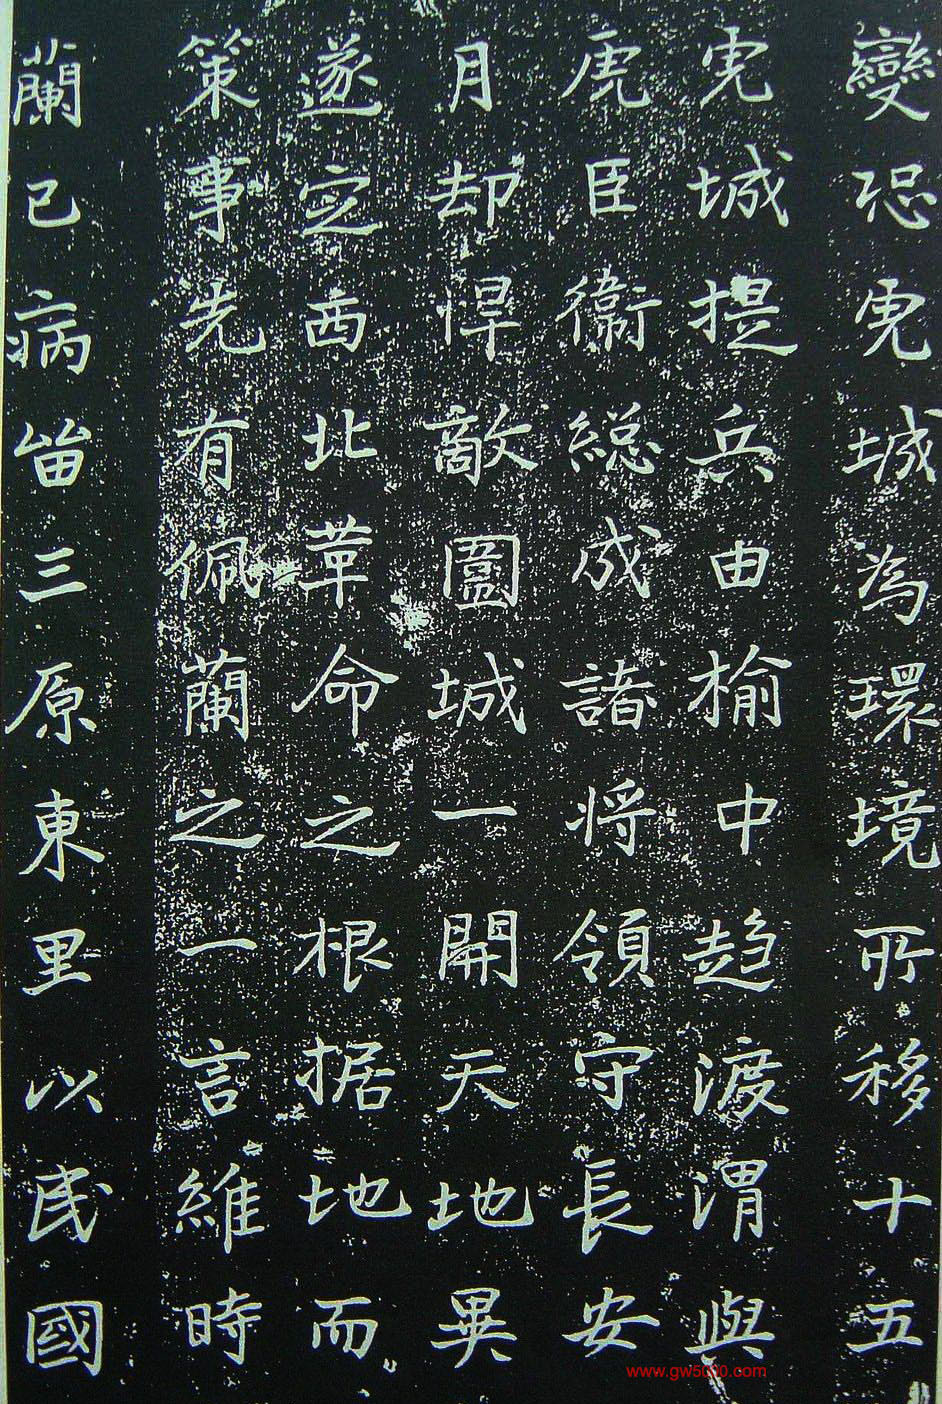 變恐虎城為環境所移十五
虎城提兵由榆中趨渡渭與
虎臣衛総成諸将領守長安
月却悍敵圍城一開天地異
遂定西北革命之根据地而
策事先有佩蘭之一言維時
蘭已病留三原東里以民國
www.gw5000.com